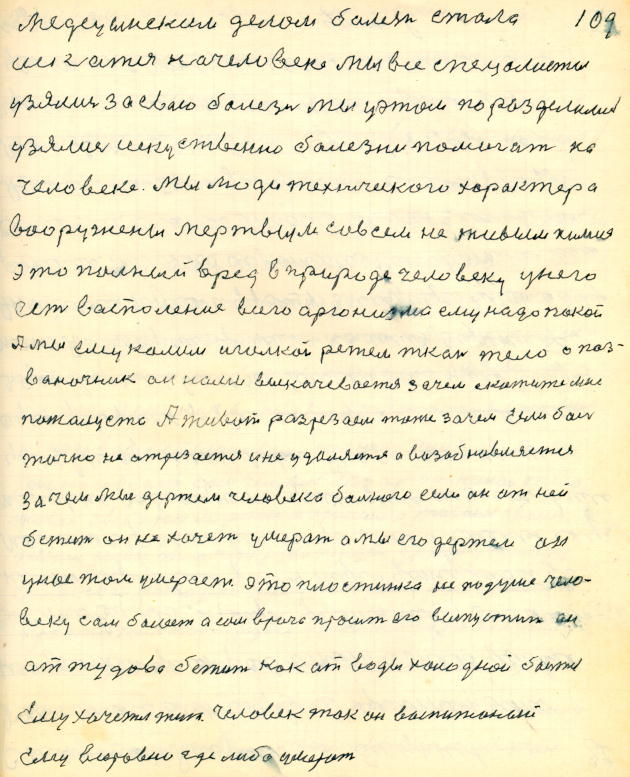 медецынским делом болезн стала 109
искатся начеловеке мы все спецолисты
узялиш засваю болезн мы уэтом поразделилис
узялис искуственно болезни помигат на
человеке. мы люди техничикого характера
вооружены мертвым совсем не живым химия
это полный вред в природе человеку унего
ест васполение всего аргонизма ему надо покой
А мы ему колим иголкой режем ткан тело а поз-
ваночник он нами выкачевается зачем скажите мне
пожалуста А живот разрезаем тоже зачем Если бол
точно не атрезается ине удаляется а возобновляется
Зачем мы держем человека болного если он от ней
бежит он не хочет умерат а мы его держем он
унас там умерает. это пластинка не подуше чело-
веку сам болеет а сам врача просит его выпустит он
аттудова бежит как от воды холодной боится
Ему хочется жит. Человек так он воспитаный
Ему всеровно где либо умерат